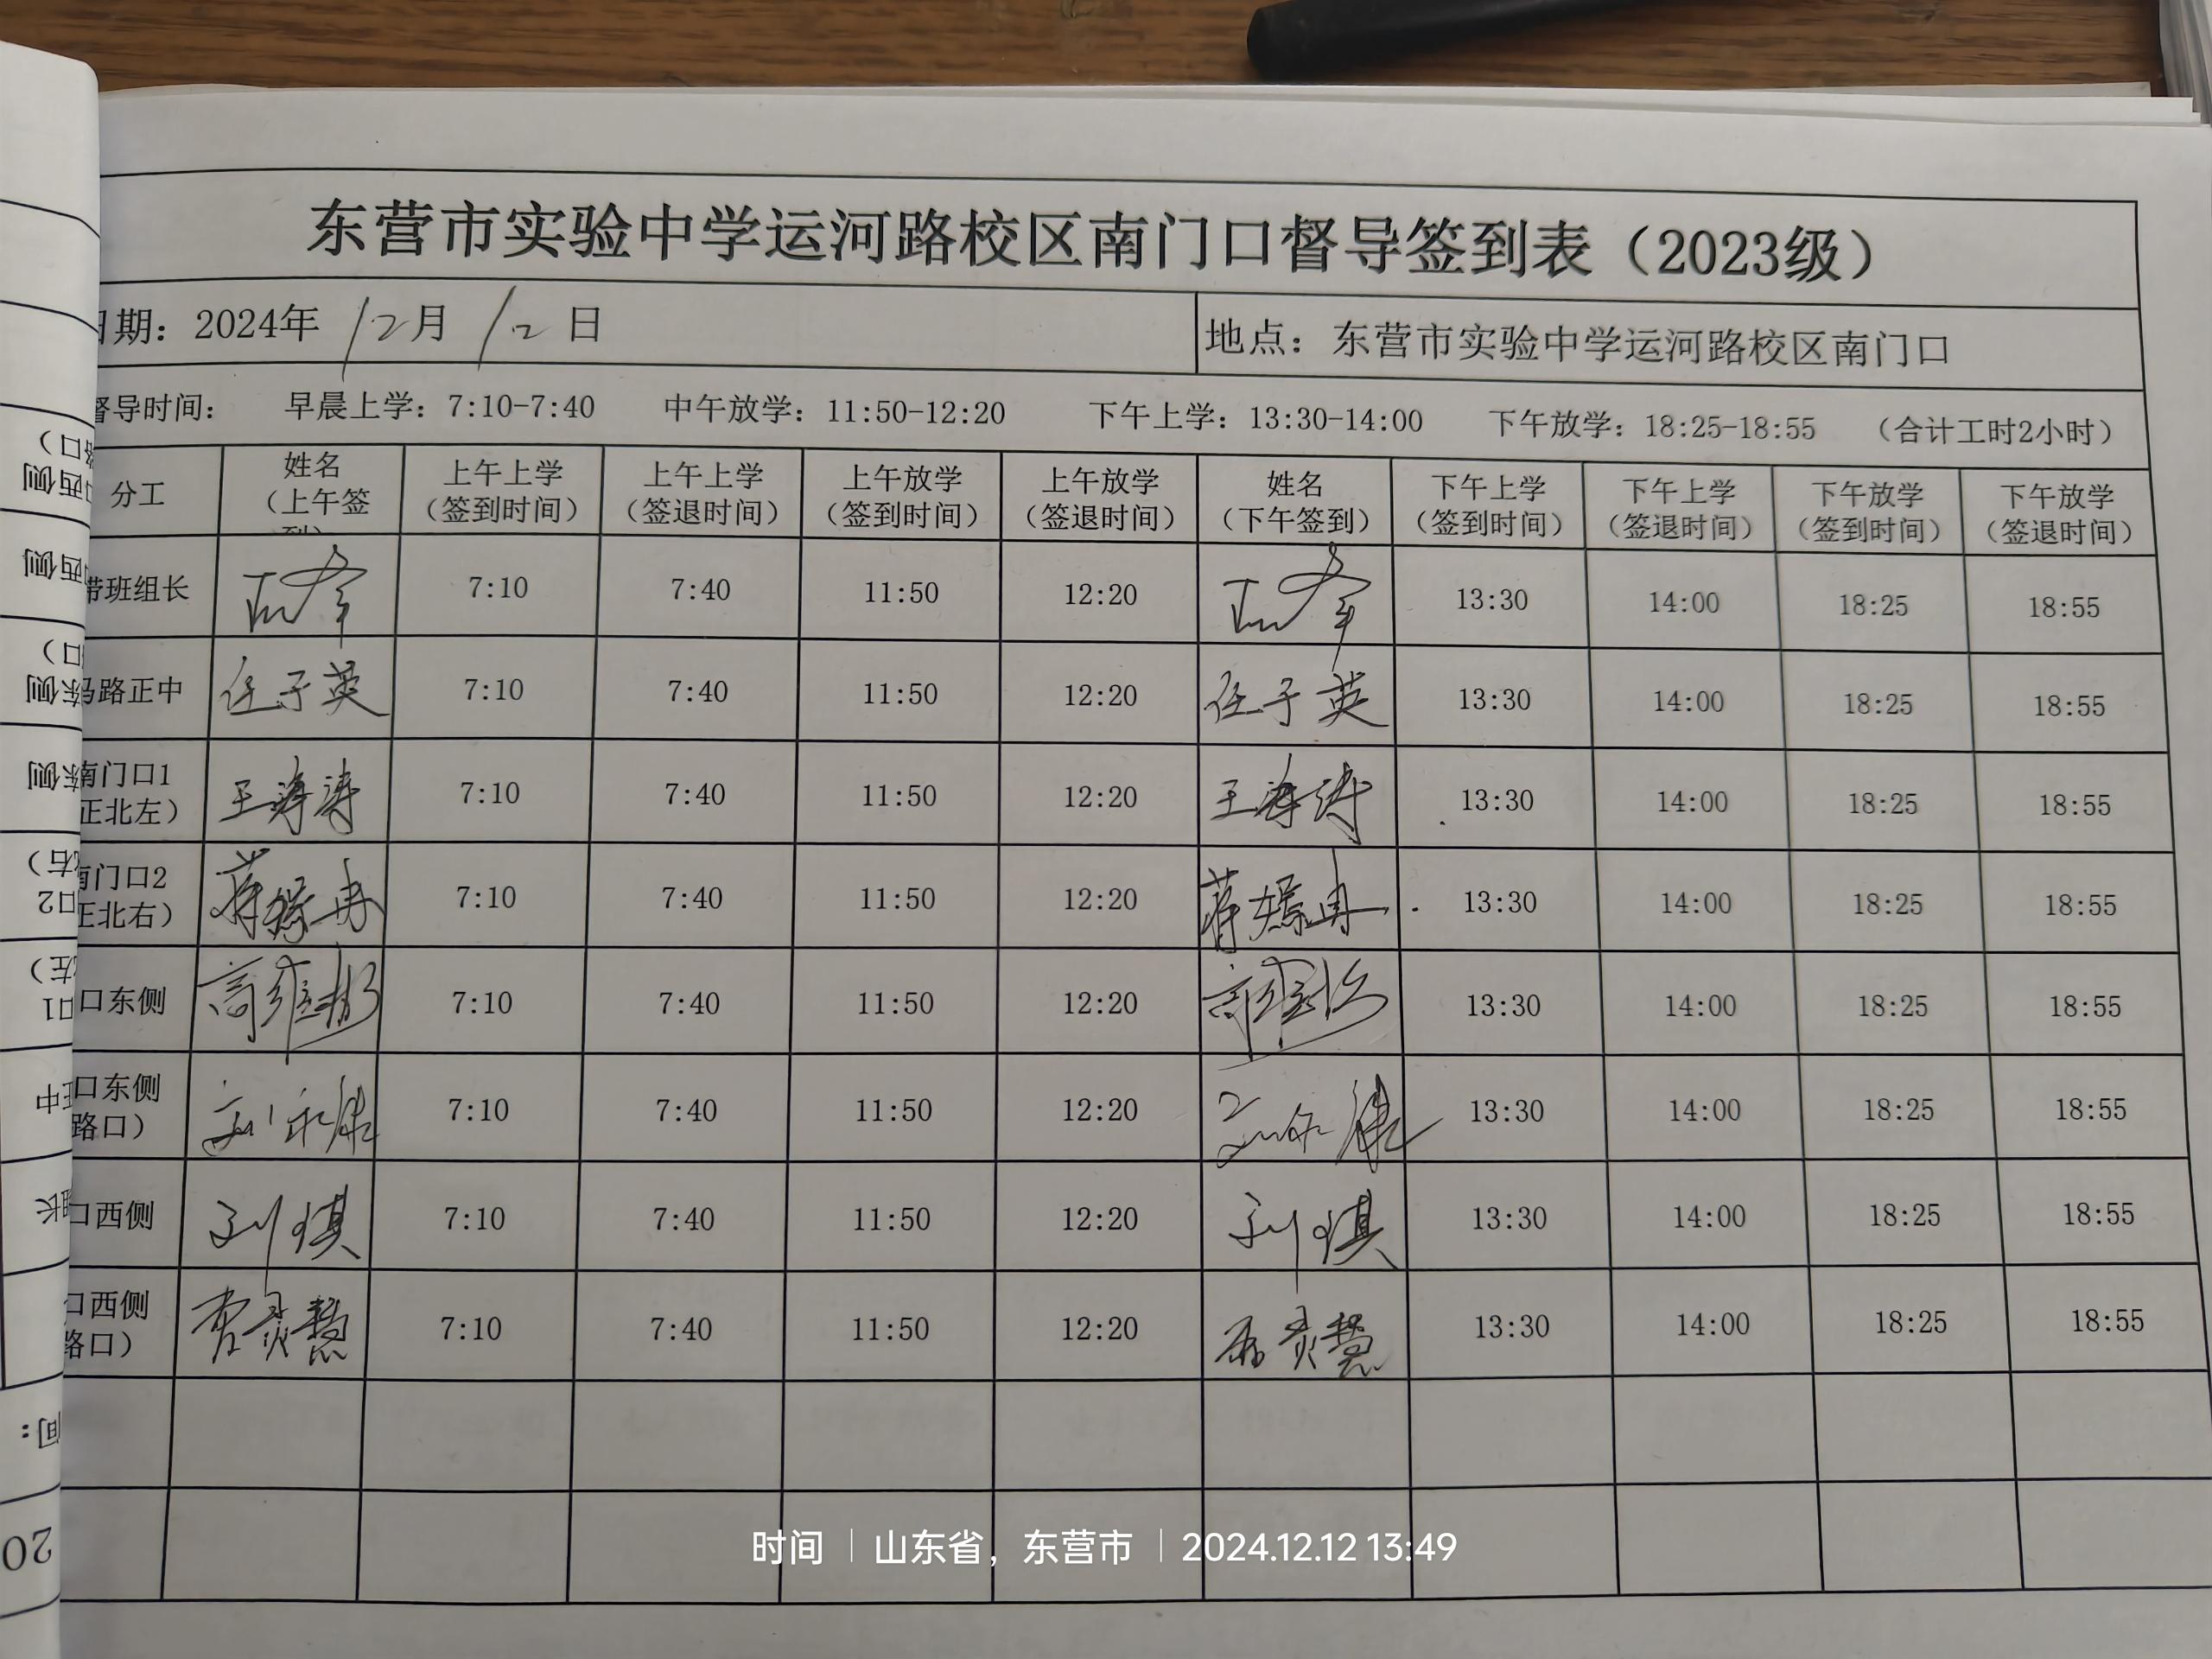 东营市实验中学运河路校区南门口督导签到表（2023级）
日期：2024年 12月 12日 地点：东营市实验中学运河路校区南门口
督导时间： 早晨上学：7:10-7:40 中午放学：11:50-12:20 下午上学：13:30-14:00 下午放学：18:25-18:55 （合计工时2小时）
分工 姓名（上午签到） 上午上学（签到时间） 上午上学（签退时间） 上午放学（签到时间） 上午放学（签退时间） 姓名（下午签到） 下午上学（签到时间） 下午上学（签退时间） 下午放学（签到时间） 下午放学（签退时间）
带班组长 7:10 7:40 11:50 12:20 13:30 14:00 18:25 18:55
马路正中 任子英 7:10 7:40 11:50 12:20 任子英 13:30 14:00 18:25 18:55
南门口1 正北左） 王海涛 7:10 7:40 11:50 12:20 王海涛 13:30 14:00 18:25 18:55
南门口2 正北右） 7:10 7:40 11:50 12:20 13:30 14:00 18:25 18:55
口东侧 7:10 7:40 11:50 12:20 13:30 14:00 18:25 18:55
口东侧 路口） 刘永康 7:10 7:40 11:50 12:20 刘永康 13:30 14:00 18:25 18:55
口西侧 刘琪 7:10 7:40 11:50 12:20 刘琪 13:30 14:00 18:25 18:55
口西侧 路口） 7:10 7:40 11:50 12:20 13:30 14:00 18:25 18:55
时间 | 山东省，东营市 | 2024.12.12 13:49